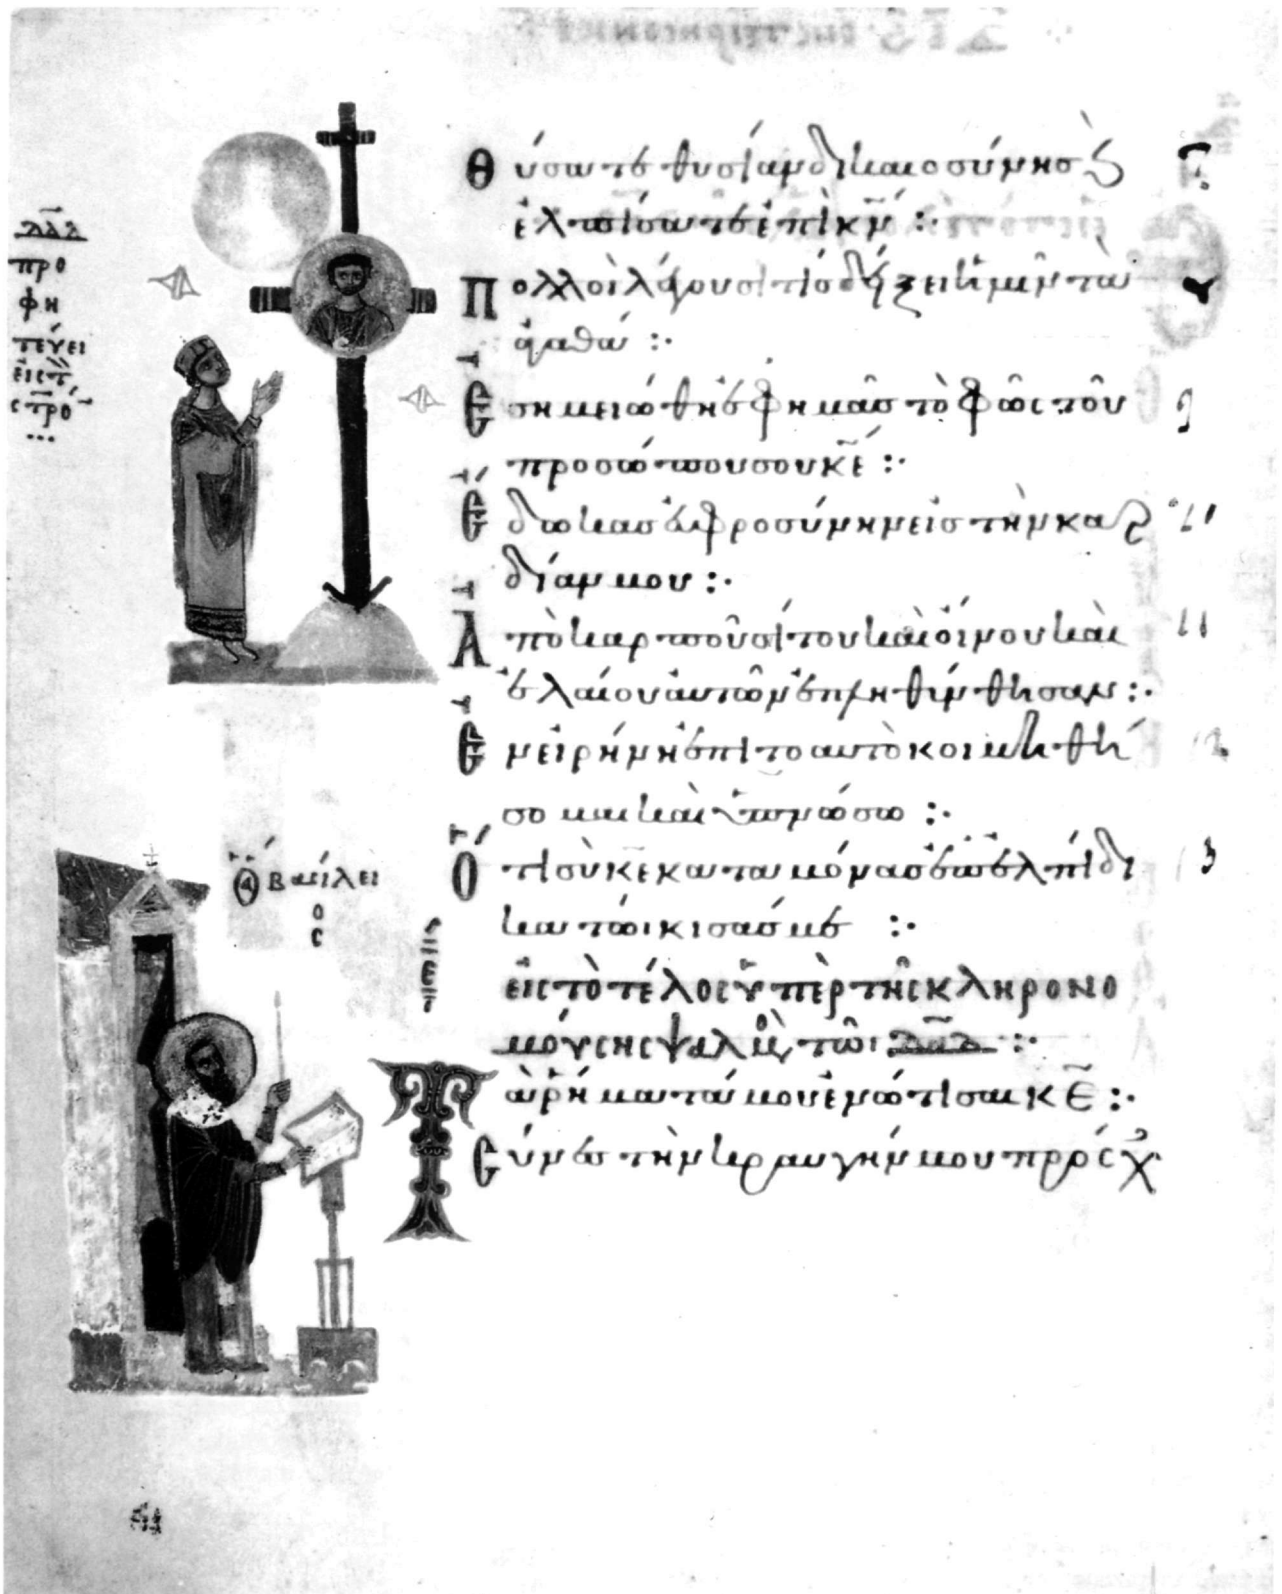 δᾱδ
προ
φη
τεύει
εἰς τ̄
στρό̄
Θύσατε θυσίαν δικαιοσύνησ ϗ
ἐλπίσατε ἐπὶ κ̄ν :·
Πολλοὶ λέγουσι τίσ δείξει ἡμῖν τὰ
ἀγαθά :·
Ἐσημειώθη ἐφ ημᾶσ τὸ φῶς τοῦ
προσώπου σου κ̄ε :·
Ἔδωκασ εὐφροσύνην εἰσ τὴν καρ
δίαν μου :·
Ἀπὸ καρποῦ σίτου καὶ οἴνου καὶ
ἐλαίου αὐτῶν ἐπληθύνθησαν :·
Ἐν εἰρήνη ἐπὶ το αυτὸ κοιμηθή
σομαι καὶ ὑπνώσω :·
Ὅτι σὺ κ̄ε κατα μόνασ ἐπ ἐλπίδι
κατώικισάσ με :·
Ὁ ἅ βασίλει
ο
ς
εἰς τὸ τέλος ὑπὲρ τῆς κληρονο
μούσης ψαλμὸς τῶι δᾱδ :·
Τὰ ῥήματά μου ἐνώτισαι κ̄ε :·
Σύνεσ τὴν κραυγήν μου πρόσχ